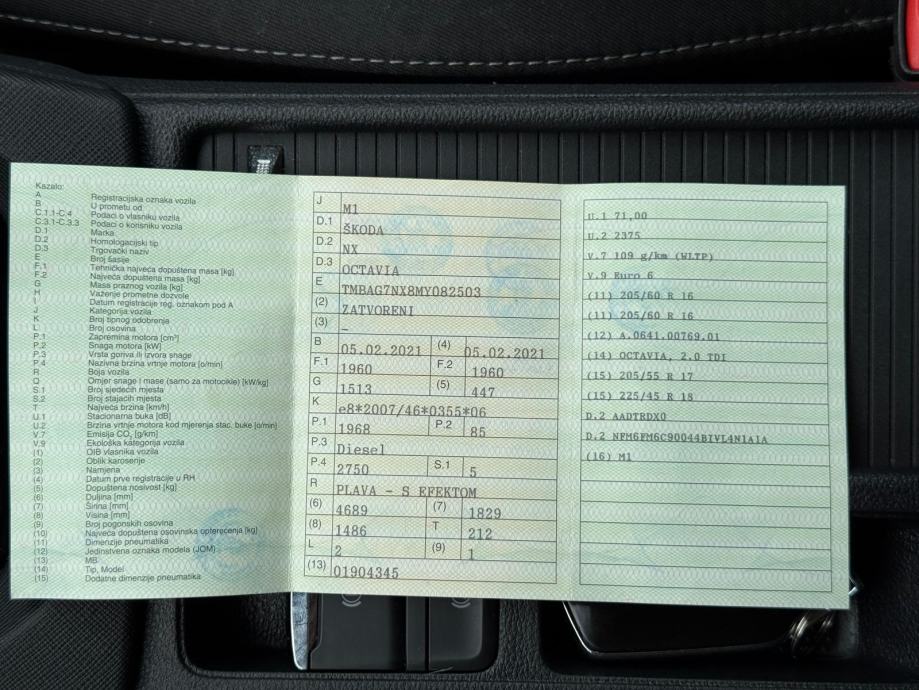 Kazalo:
A Registracijska oznaka vozila
B U prometu od
C.1.1-C.4 Podaci o vlasniku vozila
C.3.1-C.3.3 Podaci o korisniku vozila
D.1 Marka
D.2 Homologacijski tip
D.3 Trgovački naziv
E Broj šasije
F.1 Tehnička najveća dopuštena masa [kg]
F.2 Najveća dopuštena masa [kg]
G Masa praznog vozila [kg]
H Važenje prometne dozvole
I Datum registracije reg. oznakom pod A
J Kategorija vozila
K Broj tipnog odobrenja
L Broj osovina
P.1 Zapremina motora [cm³]
P.2 Snaga motora [kW]
P.3 Vrsta goriva ili izvora snage
P.4 Nazivna brzina vrtnje motora [o/min]
R Boja vozila
Q Omjer snage i mase (samo za motocikle) [kW/kg]
S.1 Broj sjedećih mjesta
S.2 Broj stajaćih mjesta
T Najveća brzina [km/h]
U.1 Stacionarna buka [dB]
U.2 Brzina vrtnje motora kod mjerenja stac. buke [o/min]
V.7 Emisija CO₂ [g/km]
V.9 Ekološka kategorija vozila
(1) OIB vlasnika vozila
(2) Oblik karoserije
(3) Namjena
(4) Datum prve registracije u RH
(5) Dopuštena nosivost [kg]
(6) Duljina [mm]
(7) Širina [mm]
(8) Visina [mm]
(9) Broj pogonskih osovina
(10) Najveća dopuštena osovinska opterećenja [kg]
(11) Dimenzije pneumatika
(12) Jedinstvena oznaka modela (JOM)
(13) MB
(14) Tip, Model
(15) Dodatne dimenzije pneumatika
J M1
D.1 ŠKODA
D.2 NX
D.3 OCTAVIA
E TMBAG7NX8MY082503
(2) ZATVORENI
(3) –
B 05.02.2021 (4) 05.02.2021
F.1 1960 F.2 1960
G 1513 (5) 447
K e8*2007/46*0355*06
P.1 1968 P.2 85
P.3 Diesel
P.4 2750 S.1 5
R PLAVA - S EFEKTOM
(6) 4689 (7) 1829
(8) 1486 T 212
L 2 (9) 1
(13) 01904345
U.1 71,00
U.2 2375
V.7 109 g/km (WLTP)
V.9 Euro 6
(11) 205/60 R 16
(11) 205/60 R 16
(12) A.0641.00769.01
(14) OCTAVIA, 2.0 TDI
(15) 205/55 R 17
(15) 225/45 R 18
D.2 AADTRDX0
D.2 NFM6FM6C90044BIVL4N1A1A
(16) M1